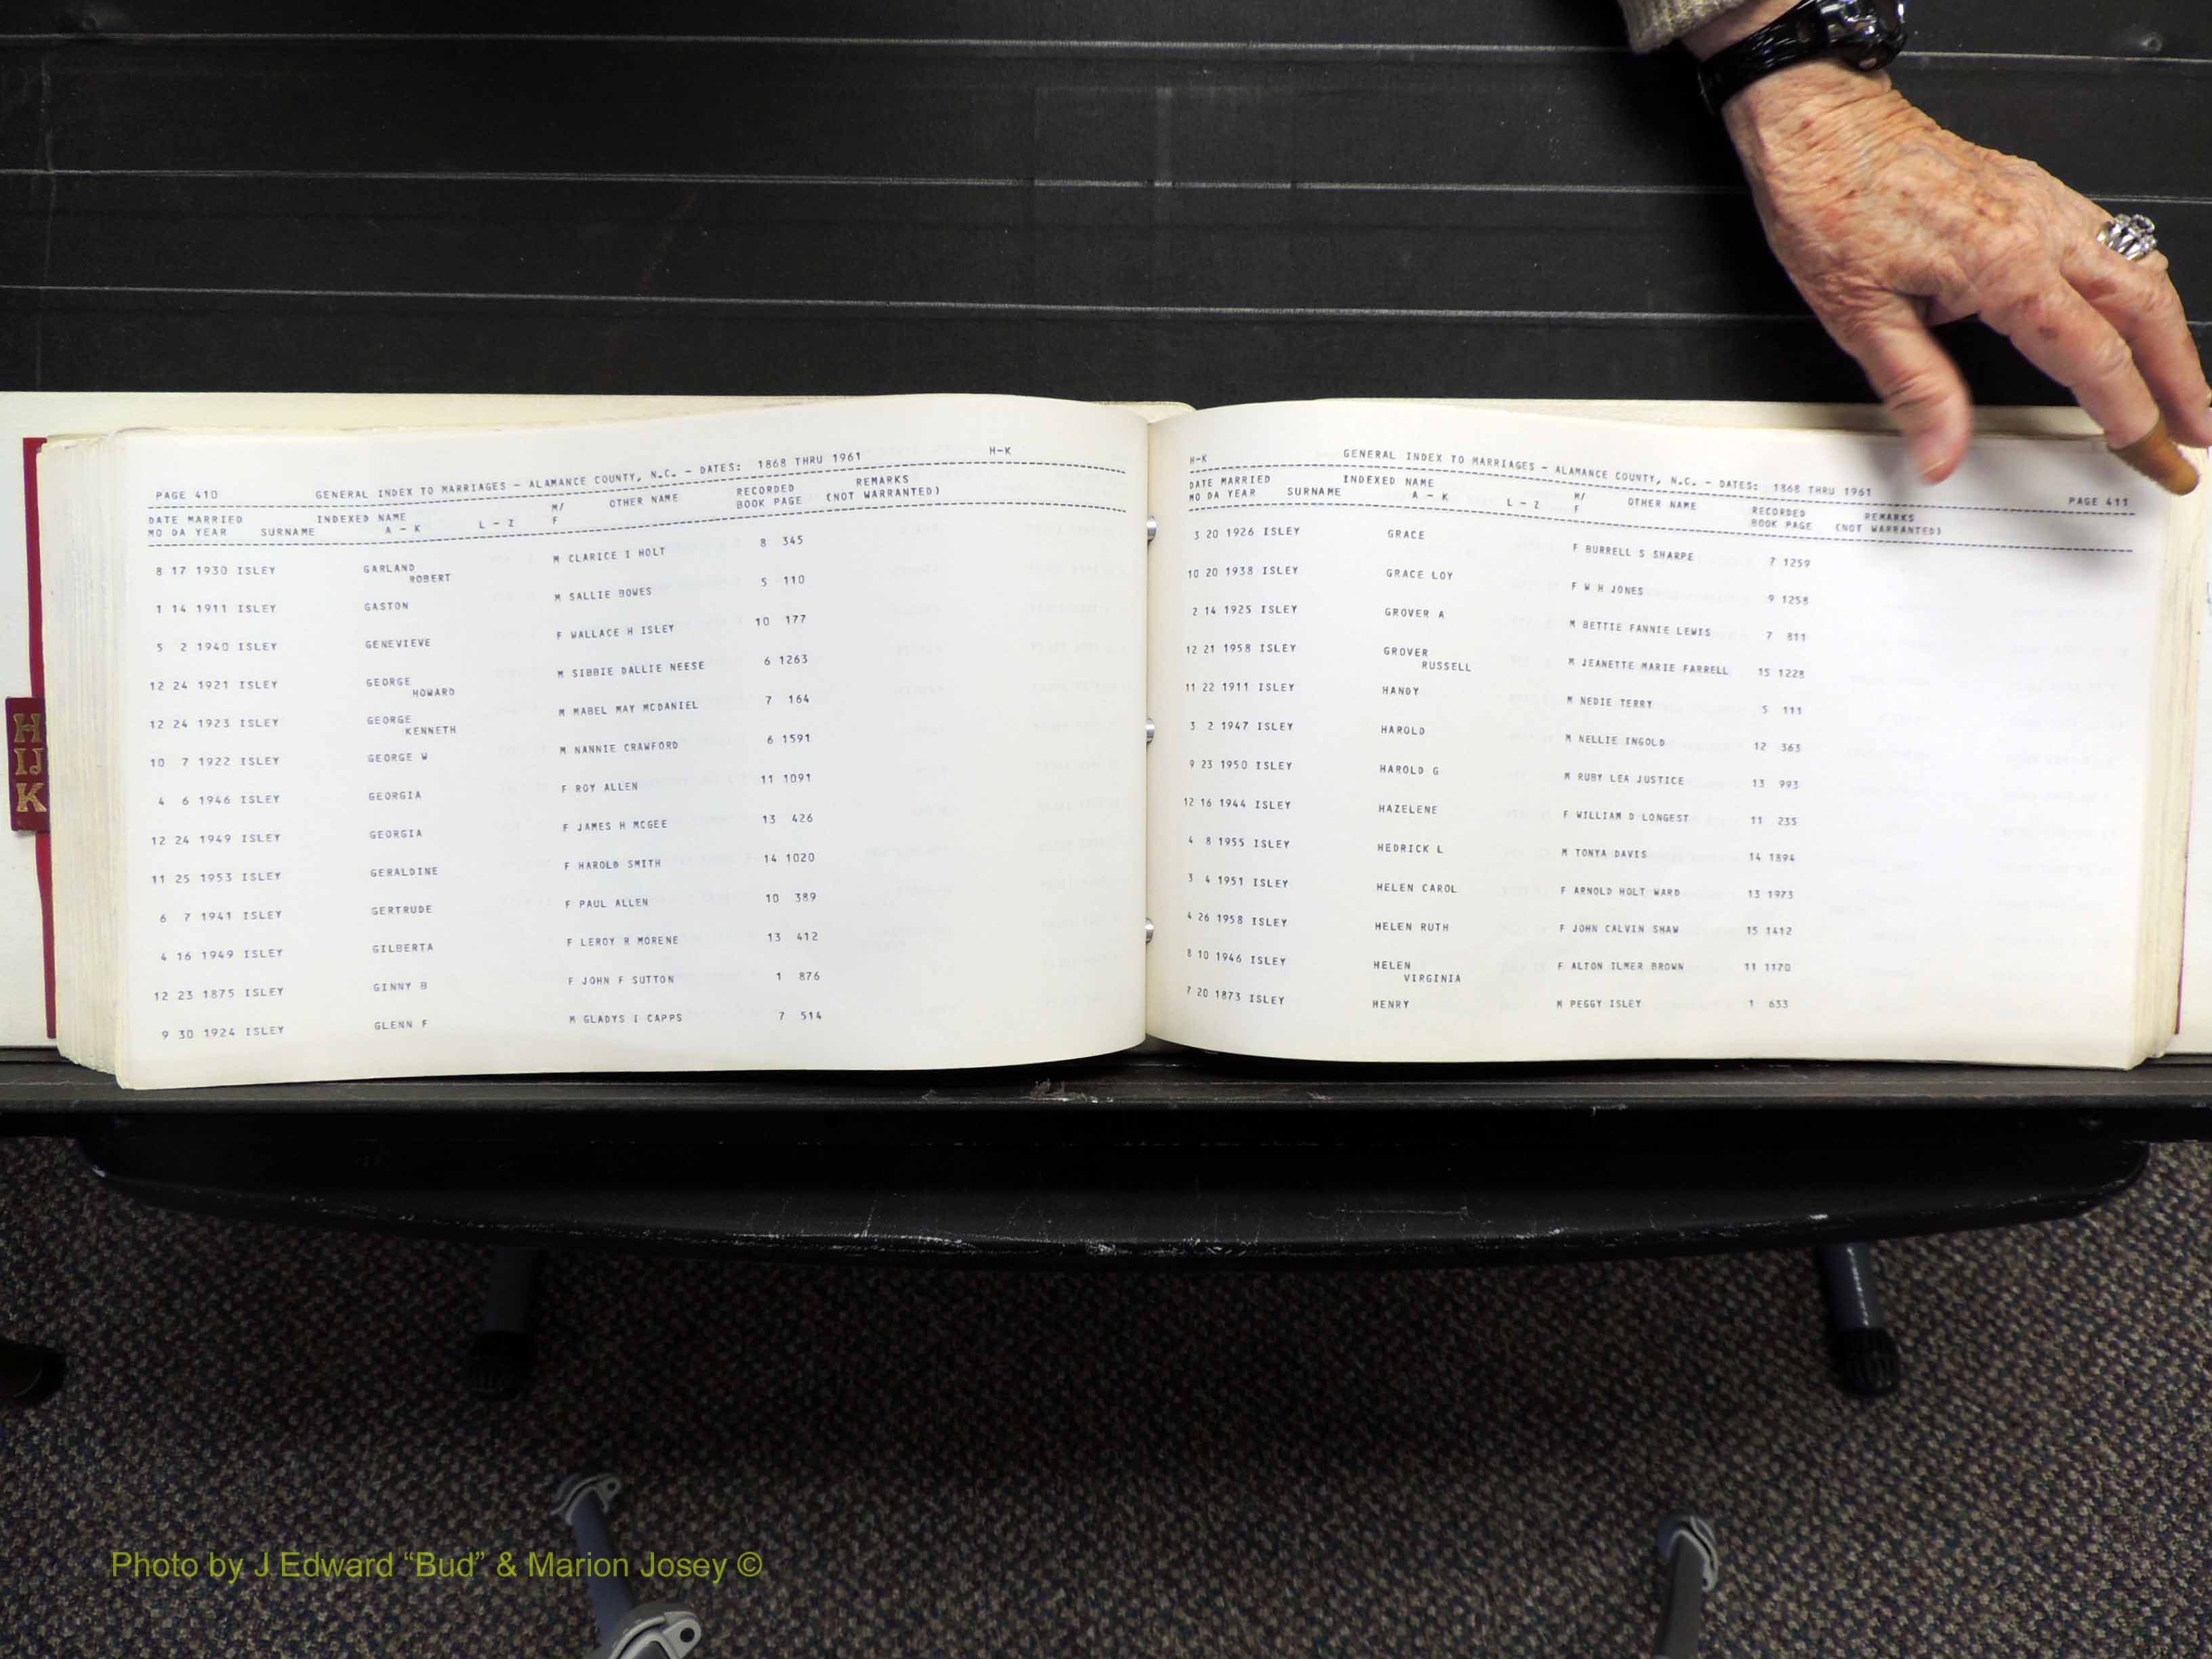 H
IJ
K
PAGE 410 GENERAL INDEX TO MARRIAGES - ALAMANCE COUNTY, N.C. - DATES: 1868 THRU 1961 H-K
DATE MARRIED INDEXED NAME M/ OTHER NAME RECORDED REMARKS
MO DA YEAR SURNAME A - K L - Z F BOOK PAGE (NOT WARRANTED)
8 17 1930 ISLEY GARLAND M CLARICE I HOLT 8 345
ROBERT
1 14 1911 ISLEY GASTON M SALLIE BOWES 5 110
5 2 1940 ISLEY GENEVIEVE F WALLACE H ISLEY 10 177
12 24 1921 ISLEY GEORGE M SIBBIE DALLIE NEESE 6 1263
HOWARD
12 24 1923 ISLEY GEORGE M MABEL MAY MCDANIEL 7 164
KENNETH
10 7 1922 ISLEY GEORGE W M NANNIE CRAWFORD 6 1591
4 6 1946 ISLEY GEORGIA F ROY ALLEN 11 1091
12 24 1949 ISLEY GEORGIA F JAMES H MCGEE 13 426
11 25 1953 ISLEY GERALDINE F HAROLD SMITH 14 1020
6 7 1941 ISLEY GERTRUDE F PAUL ALLEN 10 389
4 16 1949 ISLEY GILBERTA F LEROY R MORENE 13 412
12 23 1875 ISLEY GINNY B F JOHN F SUTTON 1 876
9 30 1924 ISLEY GLENN F M GLADYS I CAPPS 7 514
H-K GENERAL INDEX TO MARRIAGES - ALAMANCE COUNTY, N.C. - DATES: 1868 THRU 1961 PAGE 411
DATE MARRIED INDEXED NAME M/ OTHER NAME RECORDED REMARKS
MO DA YEAR SURNAME A - K L - Z F BOOK PAGE (NOT WARRANTED)
3 20 1926 ISLEY GRACE F BURRELL S SHARPE 7 1259
10 20 1938 ISLEY GRACE LOY F W H JONES 9 1258
2 14 1925 ISLEY GROVER A M BETTIE FANNIE LEWIS 7 811
12 21 1958 ISLEY GROVER M JEANETTE MARIE FARRELL 15 1228
RUSSELL
11 22 1911 ISLEY HANDY M NEDIE TERRY 5 111
3 2 1947 ISLEY HAROLD M NELLIE INGOLD 12 363
9 23 1950 ISLEY HAROLD G M RUBY LEA JUSTICE 13 993
12 16 1944 ISLEY HAZELENE F WILLIAM D LONGEST 11 235
4 8 1955 ISLEY HEDRICK L M TONYA DAVIS 14 1894
3 4 1951 ISLEY HELEN CAROL F ARNOLD HOLT WARD 13 1973
4 26 1958 ISLEY HELEN RUTH F JOHN CALVIN SHAW 15 1412
8 10 1946 ISLEY HELEN F ALTON ILMER BROWN 11 1170
VIRGINIA
7 20 1873 ISLEY HENRY M PEGGY ISLEY 1 633
Photo by J Edward “Bud” & Marion Josey ©